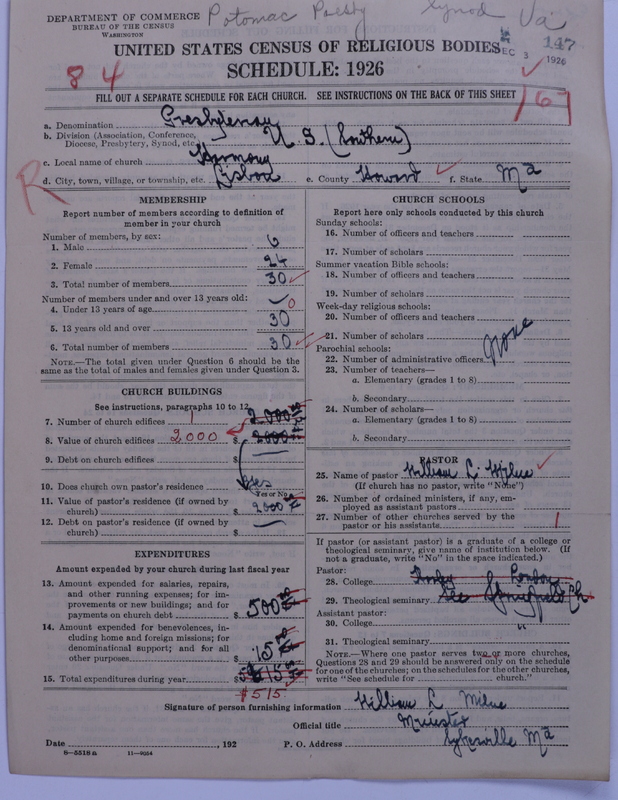 DEPARTMENT OF COMMERCE
BUREAU OF THE CENSUS
WASHINGTON
Potomac Presby Synod Va
DEC 3 1926
147
UNITED STATES CENSUS OF RELIGIOUS BODIES
SCHEDULE: 1926
84
FILL OUT A SEPARATE SCHEDULE FOR EACH CHURCH. SEE INSTRUCTIONS ON THE BACK OF THIS SHEET
167
R
a. Denomination Presbyterian
b. Division (Association, Conference, Diocese, Presbytery, Synod, etc. U. S. (Southern)
c. Local name of church Harmony
d. City, town, village, or township, etc. Lisbon e. County Howard f. State Md
MEMBERSHIP
Report number of members according to definition of member in your church
Number of members, by sex:
1. Male 6
2. Female 24
3. Total number of members 30
Number of members under and over 13 years old:
4. Under 13 years of age 0
5. 13 years old and over 30
6. Total number of members 30
NOTE.—The total given under Question 6 should be the same as the total of males and females given under Question 3.
CHURCH BUILDINGS
See instructions, paragraphs 10 to 12
7. Number of church edifices 1 2.000
8. Value of church edifices 2000 $ 2000
9. Debt on church edifices $
10. Does church own pastor's residence Yes
Yes or No
11. Value of pastor's residence (if owned by church) $ 2000
12. Debt on pastor's residence (if owned by church) $
EXPENDITURES
Amount expended by your church during last fiscal year
13. Amount expended for salaries, repairs, and other running expenses; for improvements or new buildings; and for payments on church debt $ 500
14. Amount expended for benevolences, including home and foreign missions; for denominational support; and for all other purposes $ 15
15. Total expenditures during year $ 515
$515
CHURCH SCHOOLS
Report here only schools conducted by this church
Sunday schools:
16. Number of officers and teachers
17. Number of scholars
Summer vacation Bible schools:
18. Number of officers and teachers
19. Number of scholars
Week-day religious schools:
20. Number of officers and teachers
21. Number of scholars
None
Parochial schools:
22. Number of administrative officers
23. Number of teachers—
a. Elementary (grades 1 to 8)
b. Secondary
24. Number of scholars—
a. Elementary (grades 1 to 8)
b. Secondary
PASTOR
25. Name of pastor William L. Milne
(If church has no pastor, write "None")
26. Number of ordained ministers, if any, employed as assistant pastors
27. Number of other churches served by the pastor or his assistants 1
If pastor (or assistant pastor) is a graduate of a college or theological seminary, give name of institution below. (If not a graduate, write "No" in the space indicated.)
Pastor:
28. College London
29. Theological seminary See Springfield Ch
Assistant pastor:
30. College "
31. Theological seminary
NOTE.—Where one pastor serves two or more churches, Questions 28 and 29 should be answered only on the schedule for one of the churches; on the schedules for the other churches, write "See schedule for church."
Signature of person furnishing information William L Milne
Official title Minister
Date , 192 P. O. Address Sykesville Md
8—5518a 11—9054